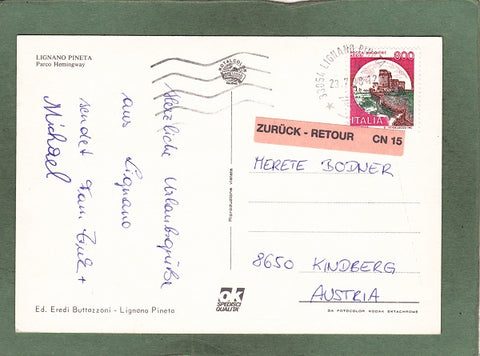 LIGNANO PINETA
Parco Hemingway
Herzliche Urlaubsgrüße
aus Lignano
sendet Fam.
Michael
Ed. Eredi Buttazzoni - Lignano Pineta
Riproduzione vietata
ROTALCOLOR
OK
SPEDISCI
QUALITÀ
33054 LIGNANO PINETA
800
ITALIA
ZURÜCK - RETOUR CN 15
MERETE BODNER
8650 KINDBERG
AUSTRIA
DA FOTOCOLOR KODAK EKTACHROME